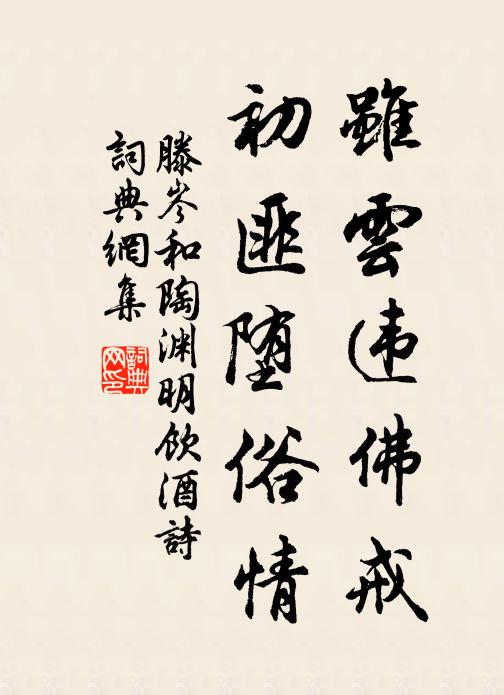 雖雲违佛戒
初匪堕俗情
滕岑和陶渊明饮酒詩
詞典網集
詞典
网印